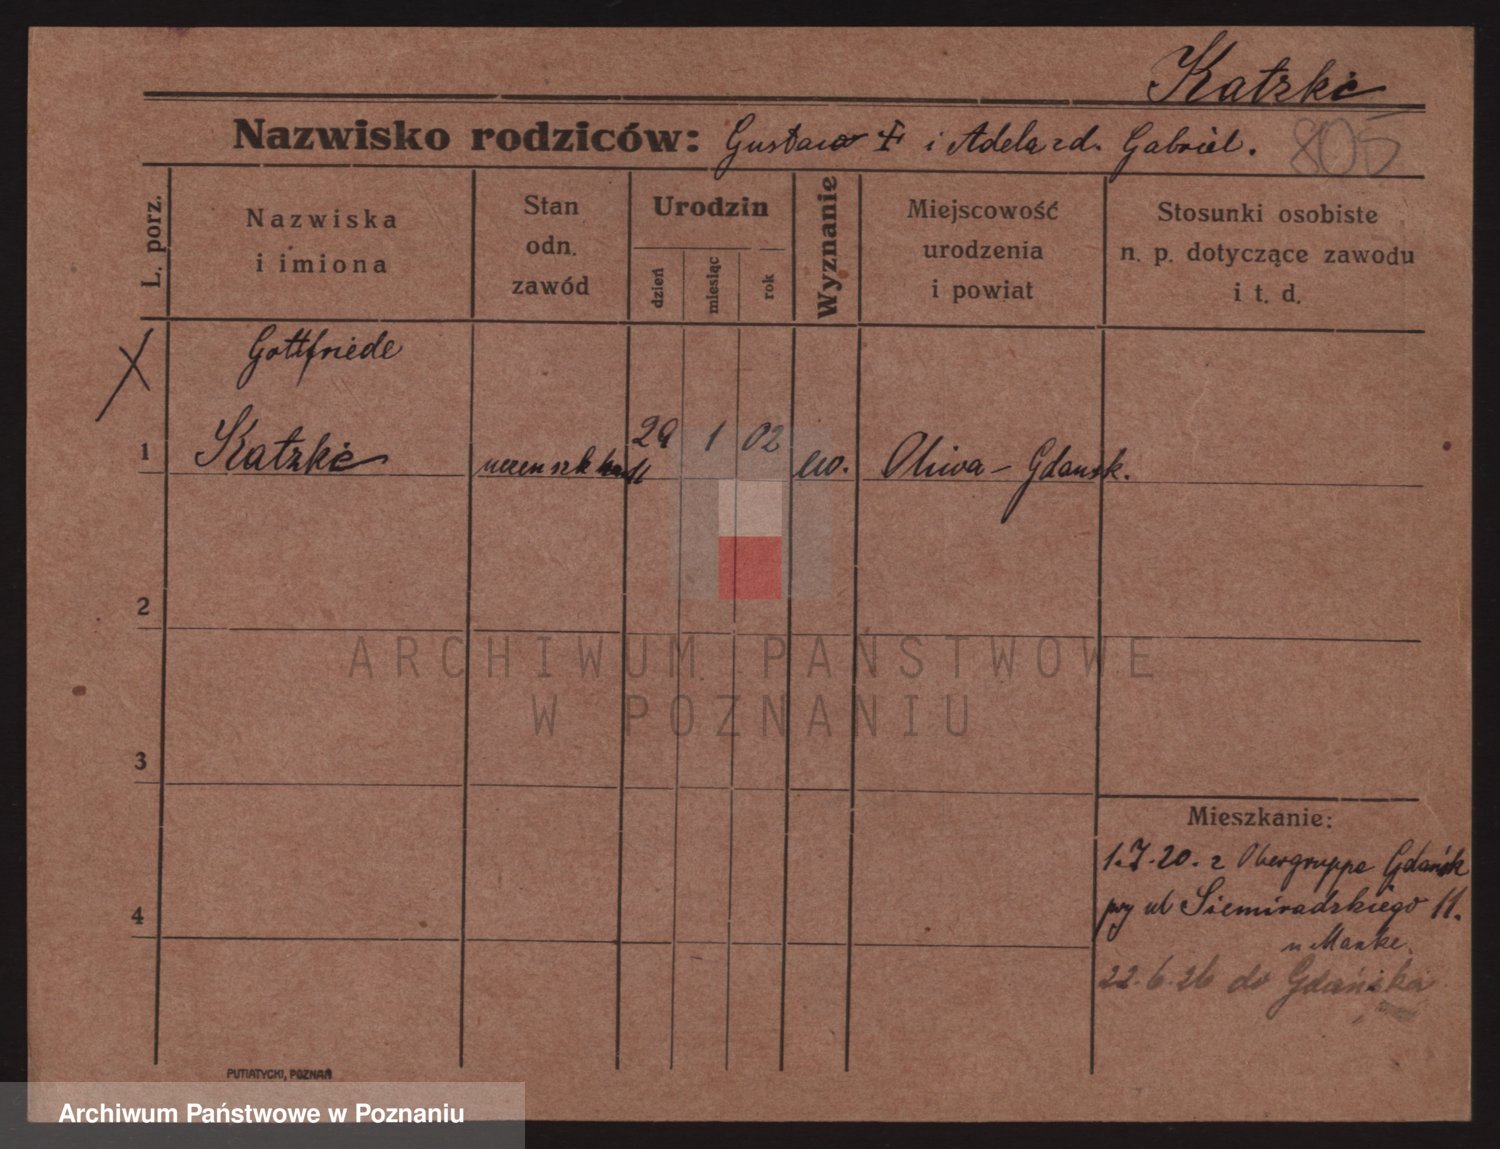 Katzkè
Nazwisko rodziców: Gustaw + i Adela zd. Gabriel.
805
L. porz.
Nazwiska
i imiona
Stan
odn.
zawód
Urodzin
dzień
miesiąc
rok
Wyznanie
Miejscowość
urodzenia
i powiat
Stosunki osobiste
n. p. dotyczące zawodu
i t. d.
X
Gottfriede
1 Katzkè 29 1 02 ew. Oliwa - Gdansk.
2
ARCHIWUM PAŃSTWOWE
W POZNANIU
3
Mieszkanie:
1.7.20. z Obergruppe Gdańsk
przy ul Siemiradzkiego 11.
4
u Manke.
22.6.26 do Gdańska
PUTIATYCKI, POZNAŃ
Archiwum Państwowe w Poznaniu